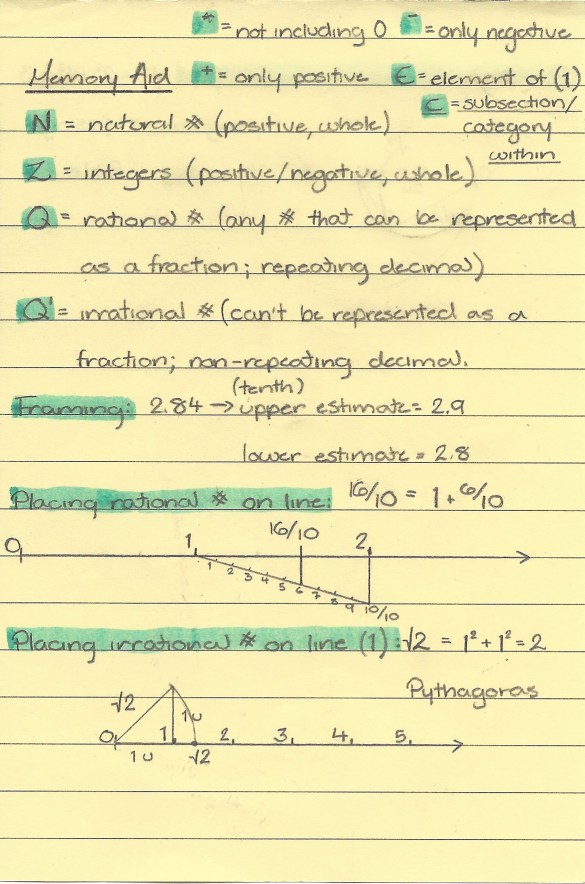 * = not including 0 - = only negative
Memory Aid + = only positive ∈ = element of (1)
⊂ = subsection/
category
within
N = natural # (positive, whole)
Z = integers (positive/negative, whole)
Q = rational # (any # that can be represented
as a fraction; repeating decimal)
Q' = irrational # (can't be represented as a
fraction; non-repeating decimal.
(tenth)
Framing: 2.84 → upper estimate = 2.9
lower estimate = 2.8
Placing rational # on line: 16/10 = 1 + 6/10
0 1 16/10 2
1 2 3 4 5 6 7 8 9 10/10
Placing irrational # on line (1): √2 = 1² + 1² = 2
Pythagoras
√2 1u
0 1 2 3 4 5
1u √2